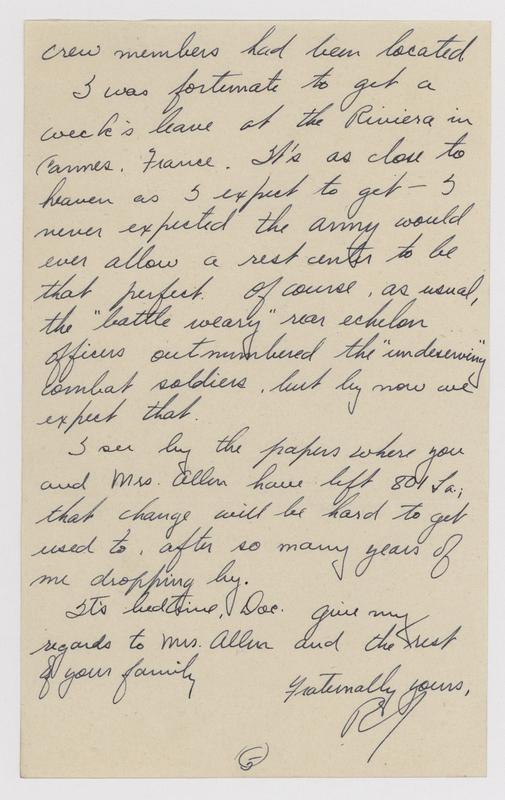 crew members had been located
I was fortunate to get a
week's leave at the Riviera in
Cannes, France. It's as close to
heaven as I expect to get – I
never expected the army would
ever allow a rest center to be
that perfect. Of course, as usual,
the "battle weary" rear echelon
officers outnumbered the "undeserving"
combat soldiers, but by now we
expect that.
I see by the papers where you
and Mrs. Allen have left 801 La.;
that change will be hard to get
used to, after so many years of
me dropping by.
It's bedtime, Doc. give my
regards to Mrs. Allen and the rest
of your family
Fraternally yours,
5